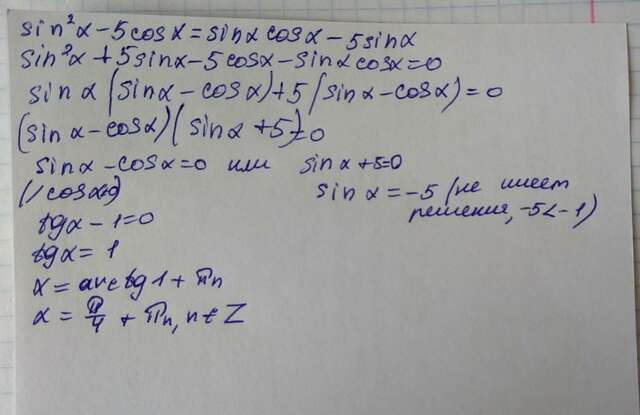 sin²α - 5cosα = sinα cosα - 5sinα
sin²α + 5sinα - 5cosα - sinα cosα = 0
sinα (sinα - cosα) + 5(sinα - cosα) = 0
(sinα - cosα)(sinα + 5) = 0
sinα - cosα = 0 или sinα + 5 = 0
(/cosα≠0) sinα = -5 (не имеет
решения, -5 < -1)
tgα - 1 = 0
tgα = 1
α = arctg1 + πn
α = π/4 + πn, n ∈ Z